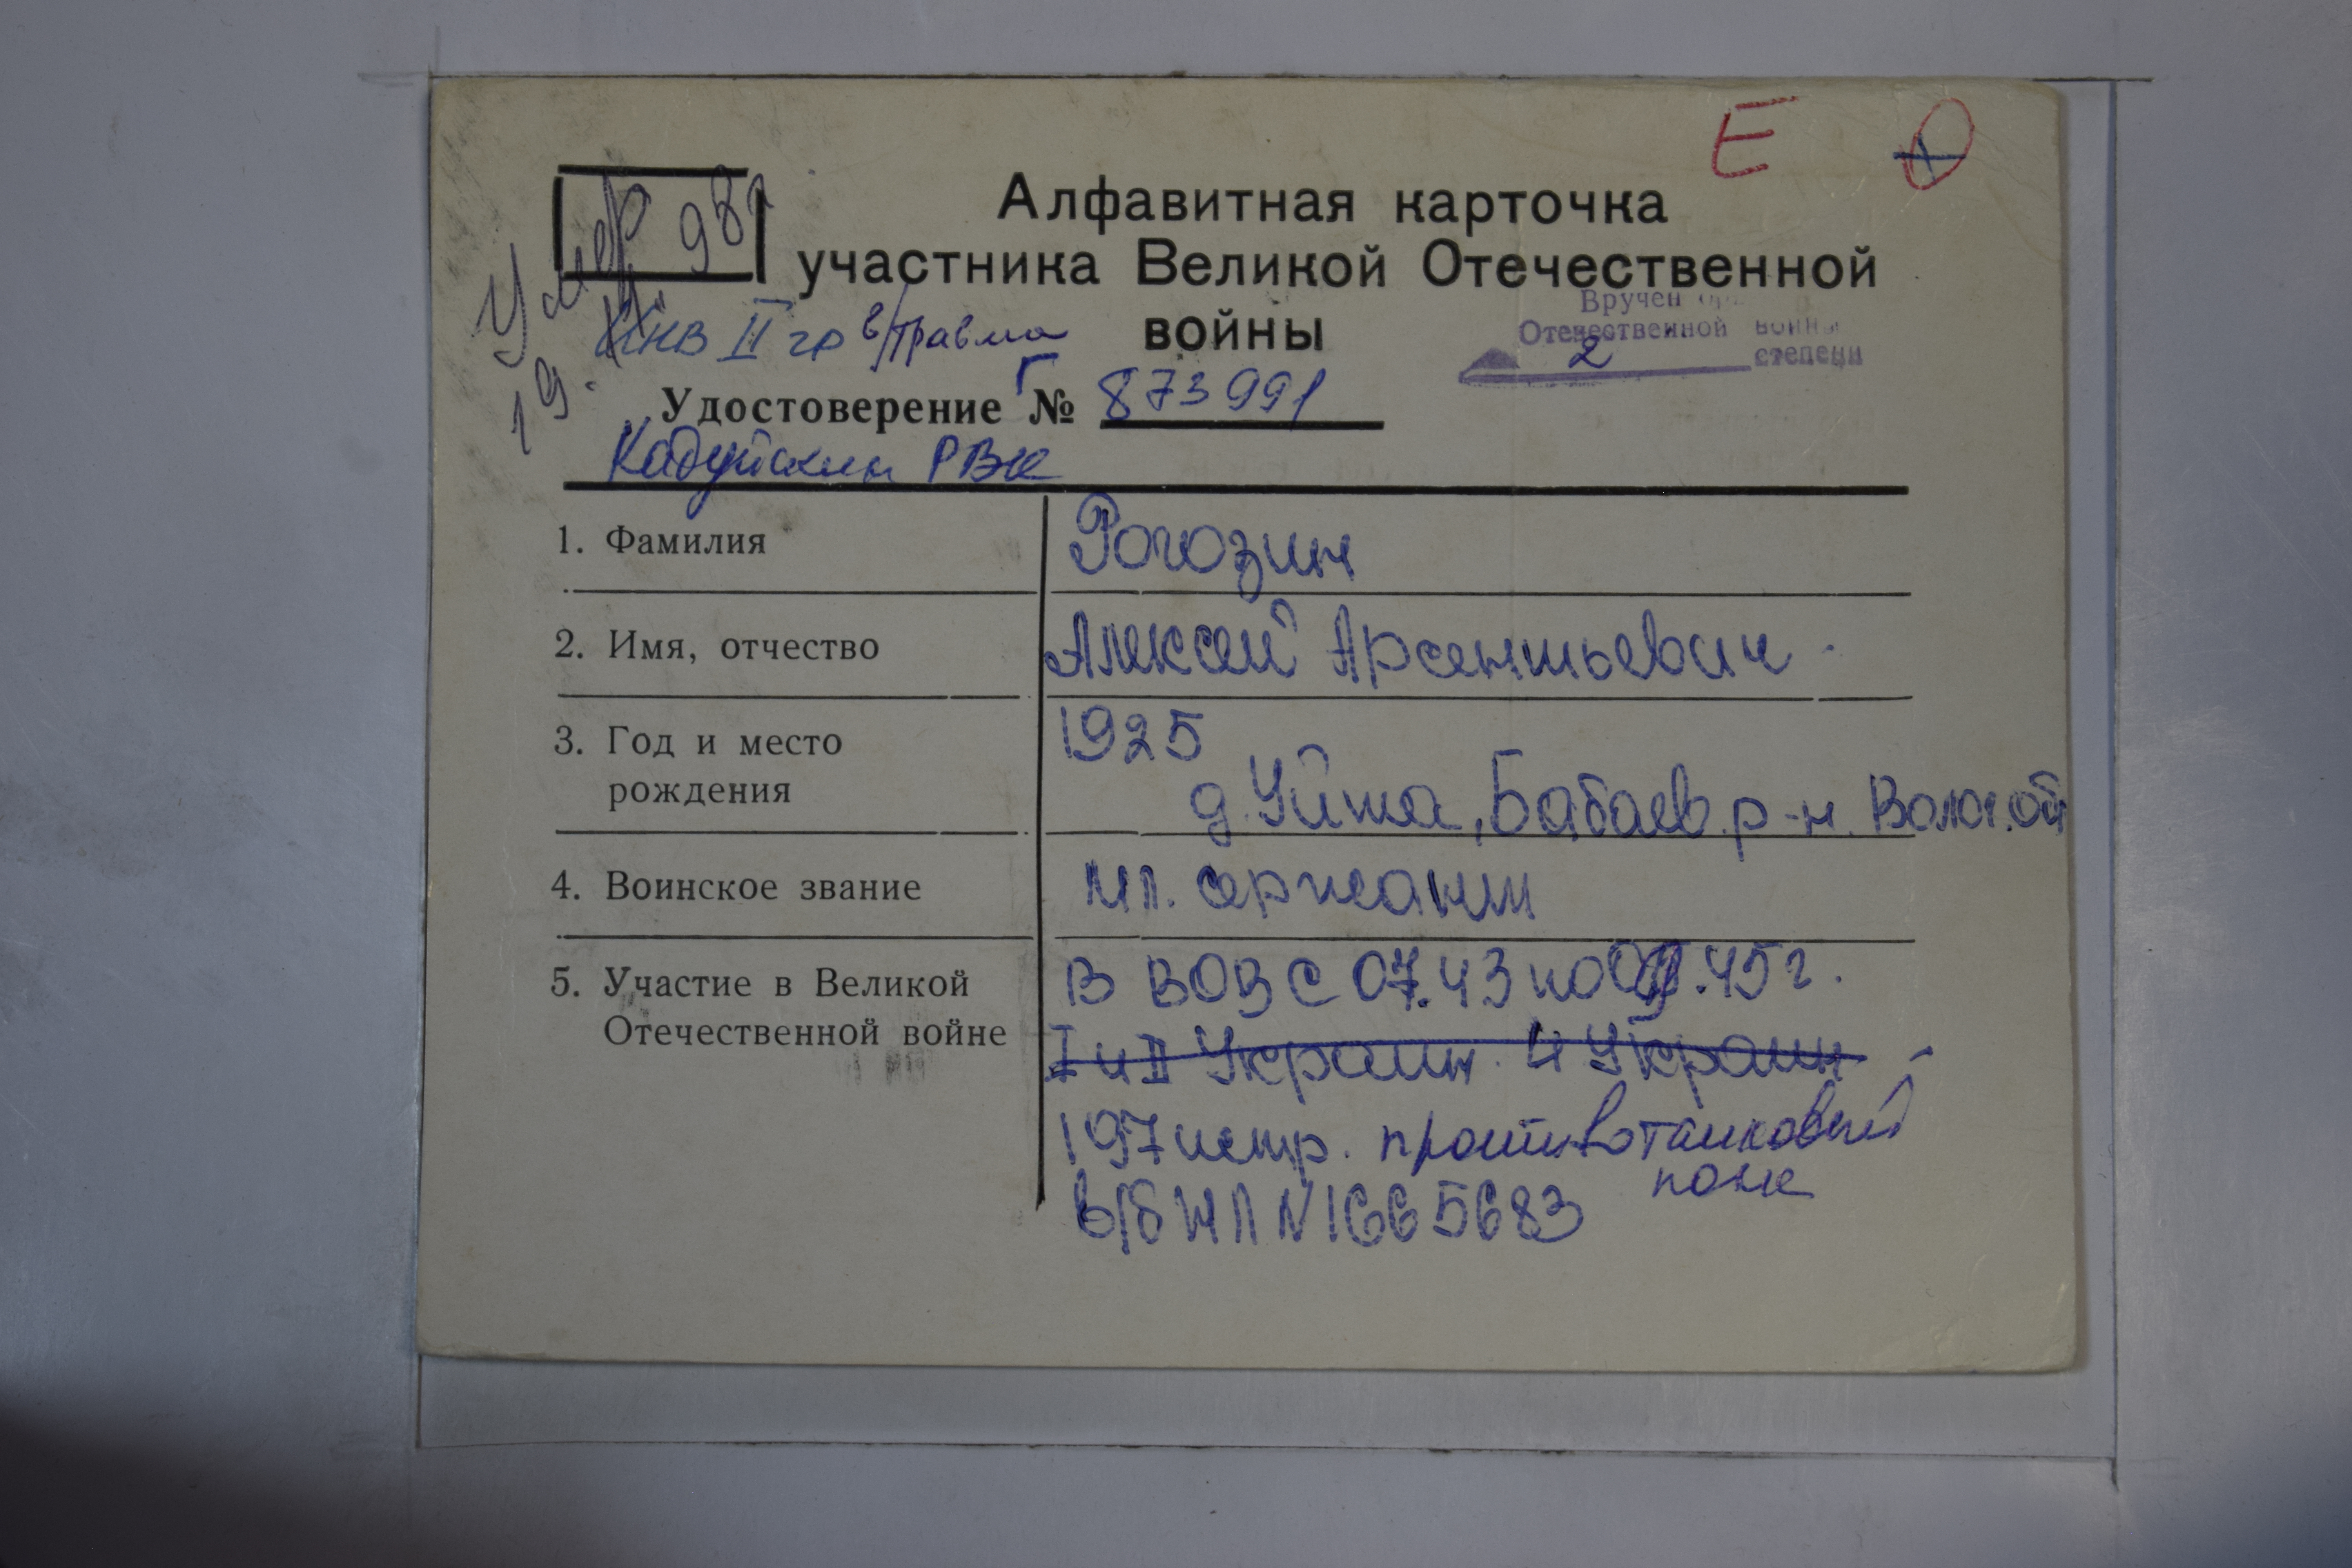 Е
Алфавитная карточка
участника Великой Отечественной
войны
Умер
19. 98г
Инв II гр в/травма
Вручен
Отечественной войны
2 степени
Удостоверение Г № 873991
Кадуйский РВК
1. Фамилия Рогозин
2. Имя, отчество Алексей Арсентьевич
3. Год и место 1925
рождения д. Уйта, Бабаев. р-н. Волог. об
4. Воинское звание мл. сержант
5. Участие в Великой В ВОВ с 07.43 по 09.45 г.
Отечественной войне I и II Украин. 4 Украин
197 истр. противотанковый
полк
в/б НЛ N1665683